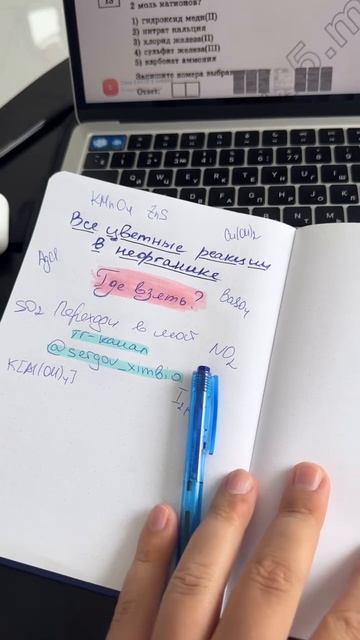 13
2 моль катионов?
1) гидроксид меди(II)
2) нитрат кальция
3) хлорид железа(II)
4) сульфат железа(III)
5) карбонат аммония
Запишите номера выбран
Ответ:
KMnO4 ZnS
Cu(OH)2
Все цветные реакции
в неорганике
AgCl
Где взять?
BaSO4
SO2 Переходи в мой
NO2
тг-канал
@sergov_ximbio
K[Al(OH)4]
I2